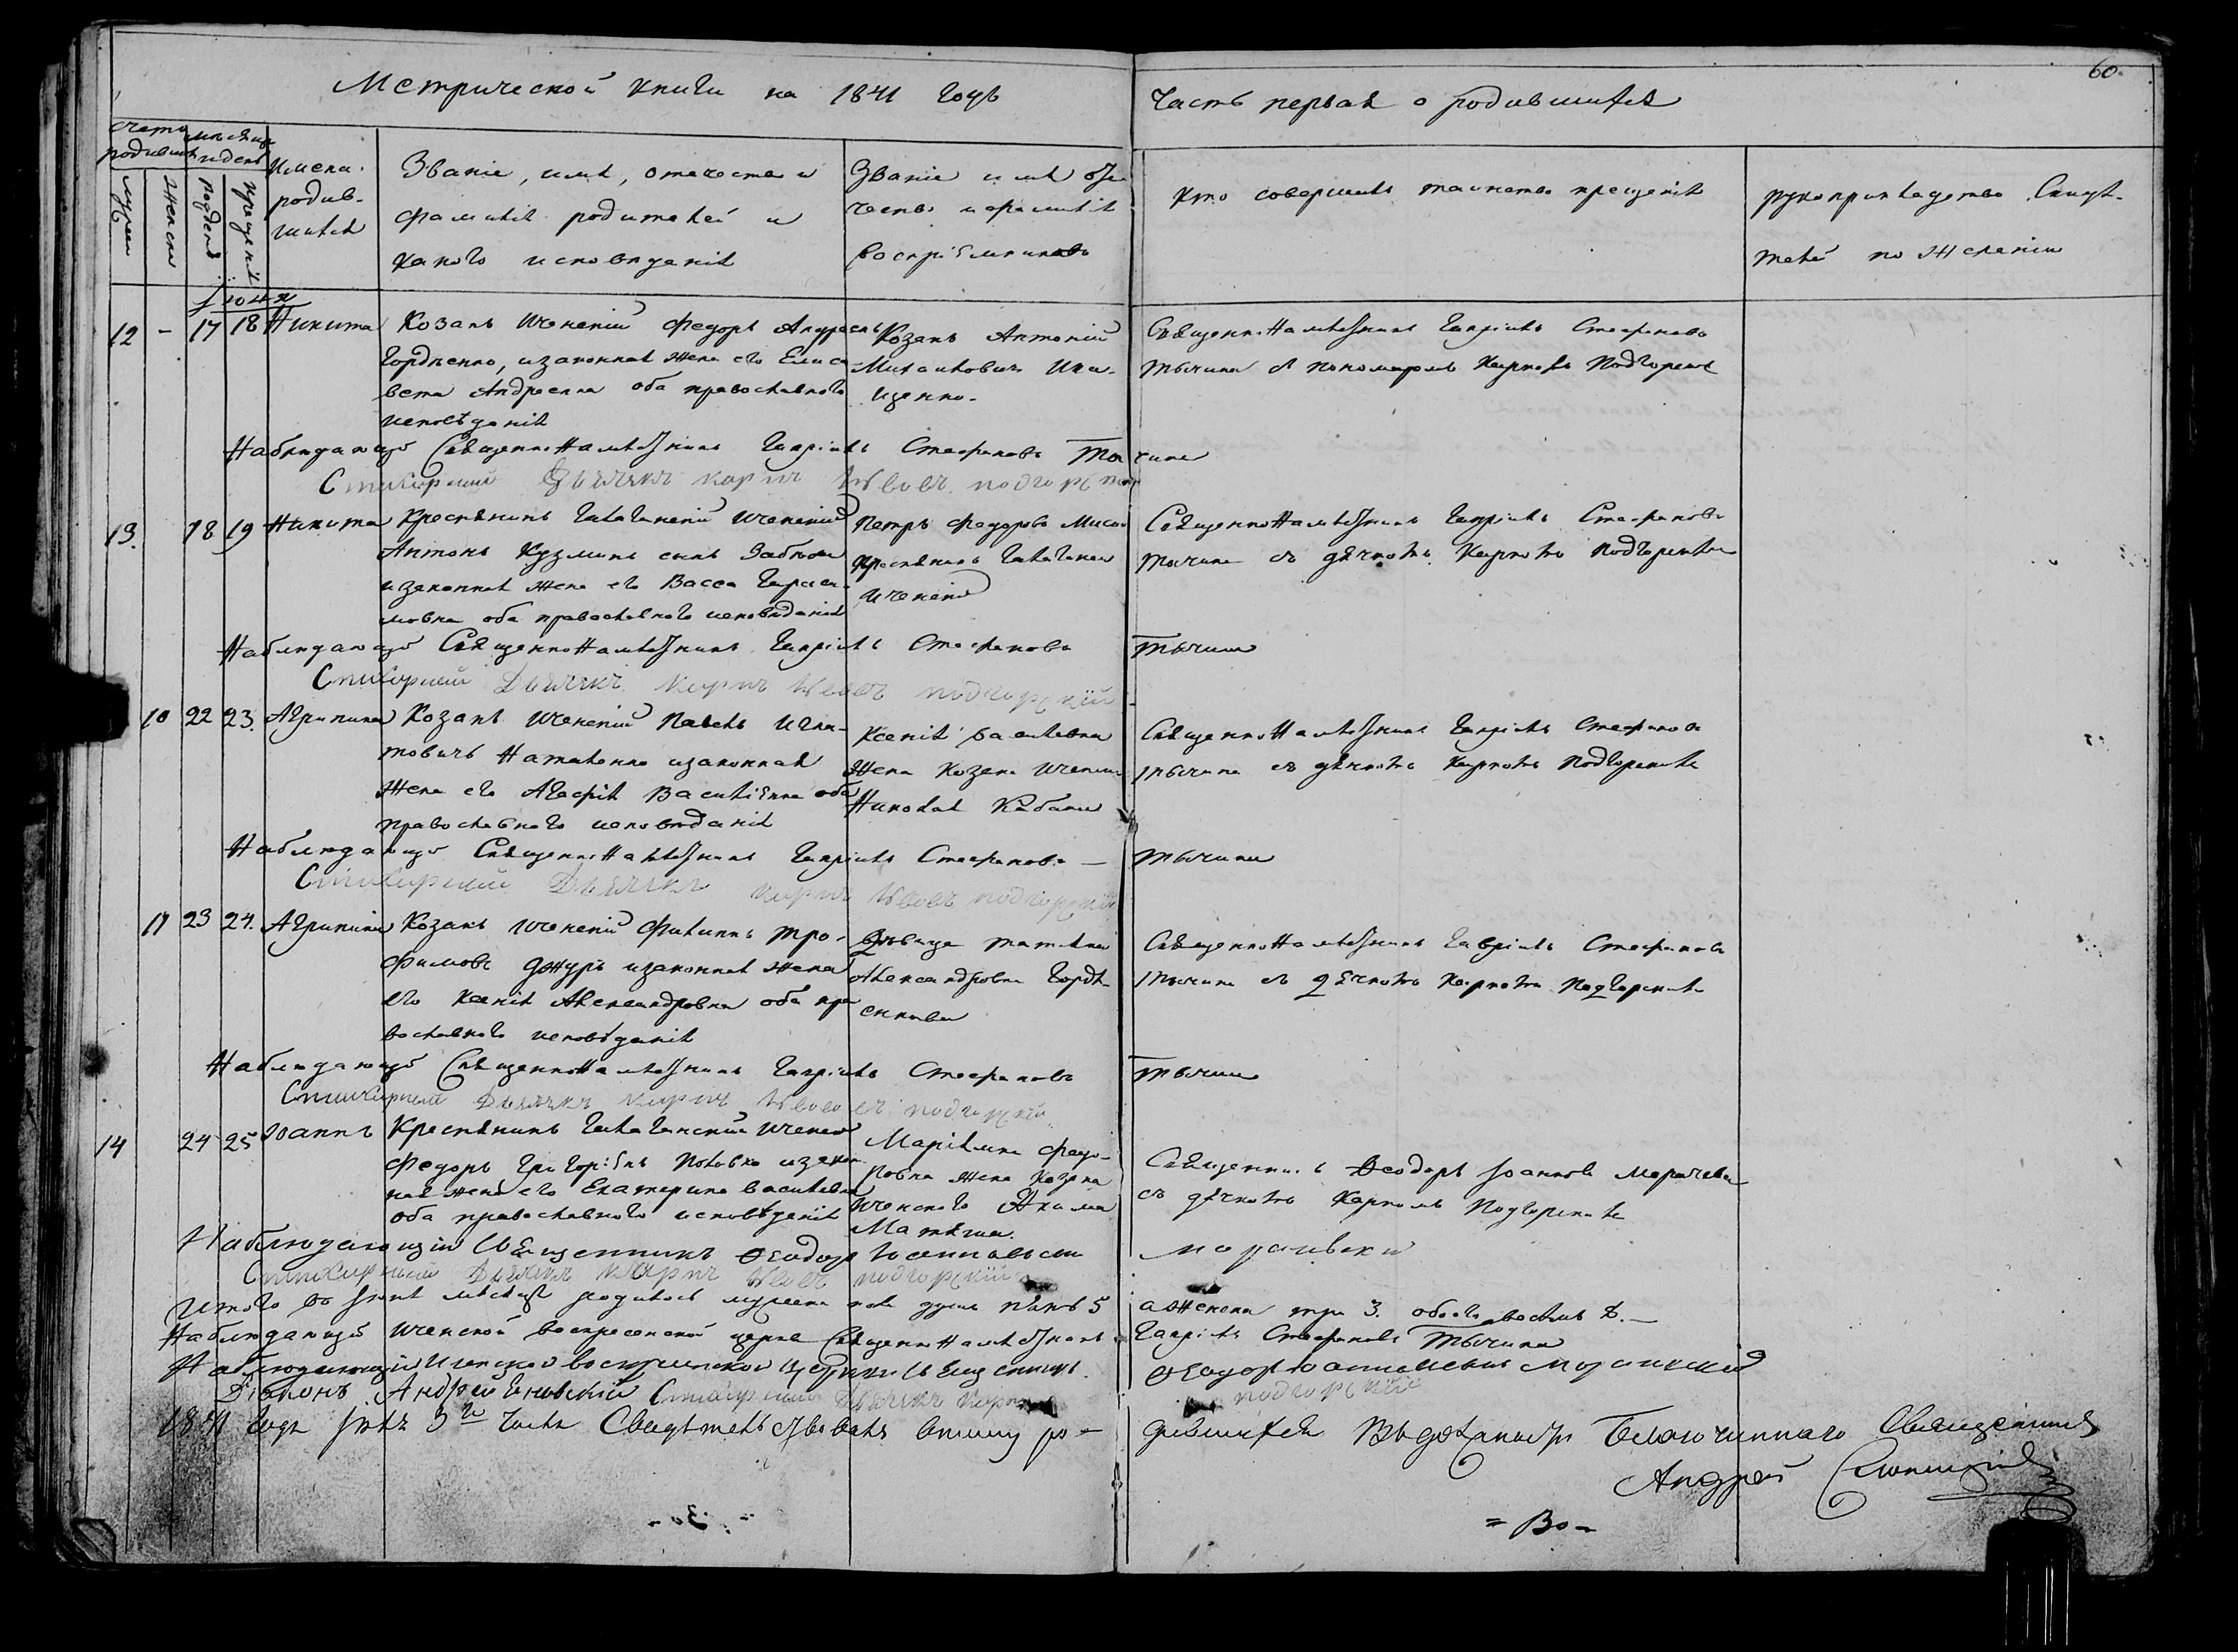 60
Метрической книги на 1841 годъ
Часть первая о родившихся
счетъ родивш
мѣсяцъ и день
мужеск
женск
рожденія
крещенія
Имена родив-
шихся
Званіе, имя, отечество и
фамилія родителей и
какого исповѣданія
Званіе имя оте-
чество и фамилія
воспріемниковъ
Кто совершилъ таинство крещенія
рукоприкладство Свидѣ-
телей по желанію
Іюня
12 - 17 18 Никита
Козакъ Иченскій Федоръ Андреевъ
Гордѣенко, и законная жена его Елиса-
вета Андреевна оба православнаго
исповѣданія
Козакъ Антоній
Михаиловичъ
Священно Намѣстникъ Гавріилъ Стефановъ
Тычина с пономаремъ Карпомъ Подгорским
Наблюдающій Священно Намѣстникъ Гавріилъ Стефановъ Тычина
Стихарный Дьячекъ Карпъ Іевлевъ Подгорский
13. 18 19 Никита
Крестянинъ Галаганскій Иченскій
Антонъ Кузминъ сынъ
и законная жена его Васса Гераси-
мовна оба православнаго исповѣданія
Петръ Федоровъ
крестянинъ Галаганск
Иченскій
Священно Намѣстникъ Гавріилъ Стефановъ
Тычина съ дячкомъ Карпомъ Подгорским
Наблюдающій Священно Намѣстникъ Гавріилъ Стефановъ Тычина
Стихарный Дьячекъ Карпъ Іевлевъ подгорскій
10 22 23. Агрипина
Козакъ Иченскій Павелъ Игна-
товичъ и законная
жена его Агафія Василіевна оба
православного исповѣданія
Ксенія Василевна
жена козака Иченск
Николая Кабана
Священно Намѣстникъ Гавріилъ Стефановъ
Тычина съ дячкомъ Карпомъ Подгорским
Наблюдающій Священно Намѣстникъ Гавріилъ Стефановъ — Тычина
Стихарный Дьячекъ Карпъ Іевлевъ подгорскій
11 23 24. Агрипина
Козакъ Иченскій Филиппъ Тро-
фимовъ Джуръ и законная жена
его Ксенія Александровна оба пра
вославного исповѣданія
Дѣвица Татіана
Александровна Гордѣ-
енкова
Священно Намѣстникъ Гавріилъ Стефановъ
Тычина съ дячкомъ Карпомъ Подгорским
Наблюдающій Священно Намѣстникъ Гавріилъ Стефановъ Тычина
Стихарный Дьячекъ Карпъ Іевлевъ подгорскій
14 24 25 Іоаннъ
Крестянинъ Галаганскій Иченск
Федоръ Григоріевъ и закон-
ная жена его Екатерина Василевна
оба православного исповѣданія
Маріамна Федо-
ровна жена козака
Иченского Акима
Священникъ Феодоръ Іоанновъ Морачевск
съ дячкомъ Карпомъ Подгорским
Наблюдающій Священникъ Феодоръ Іоанновъ Морачевскій
Стихарный Дьячекъ Карпъ Іевлевъ подгорскій
Итого въ Іюнѣ мѣсяцѣ родилось мужеска пола душъ пять 5 а женска три 3. обоего восемь 8.—
Наблюдающій Иченской Воскресенской церкви Священно Намѣстникъ Гавріилъ Стефановъ Тычина
Наблюдающій Иченской Воскресенской церкви Священникъ Феодоръ Іоанновъ Морачевскій
Діаконъ Андрей Стихарный Дьячекъ Карпъ подгорскій
1841 года Іюля 3го числа Свидѣтельствовалъ книгу ро- дившихся Благочинного Священникъ
Андрей
= Во =